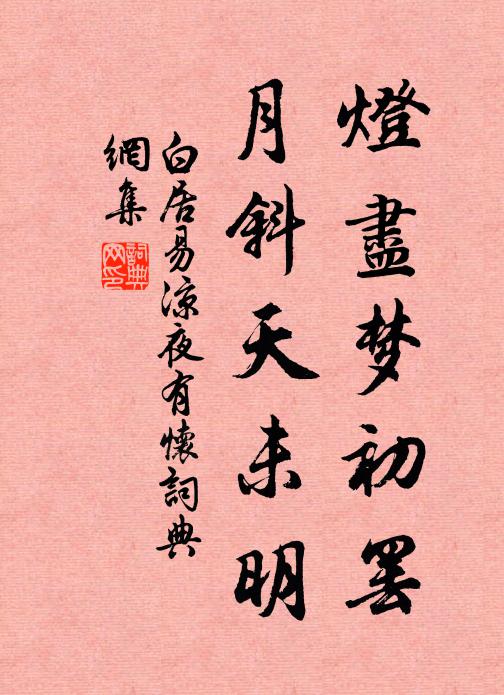 燈盡梦初罢
月斜天未明
白居易凉夜有懷詞典
網集
詞典
网印